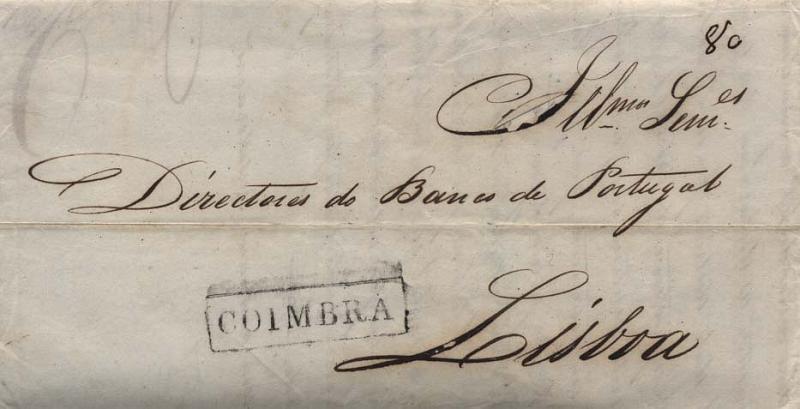 80
Illmos Senres
Directores do Banco de Portugal
COIMBRA
Lisboa